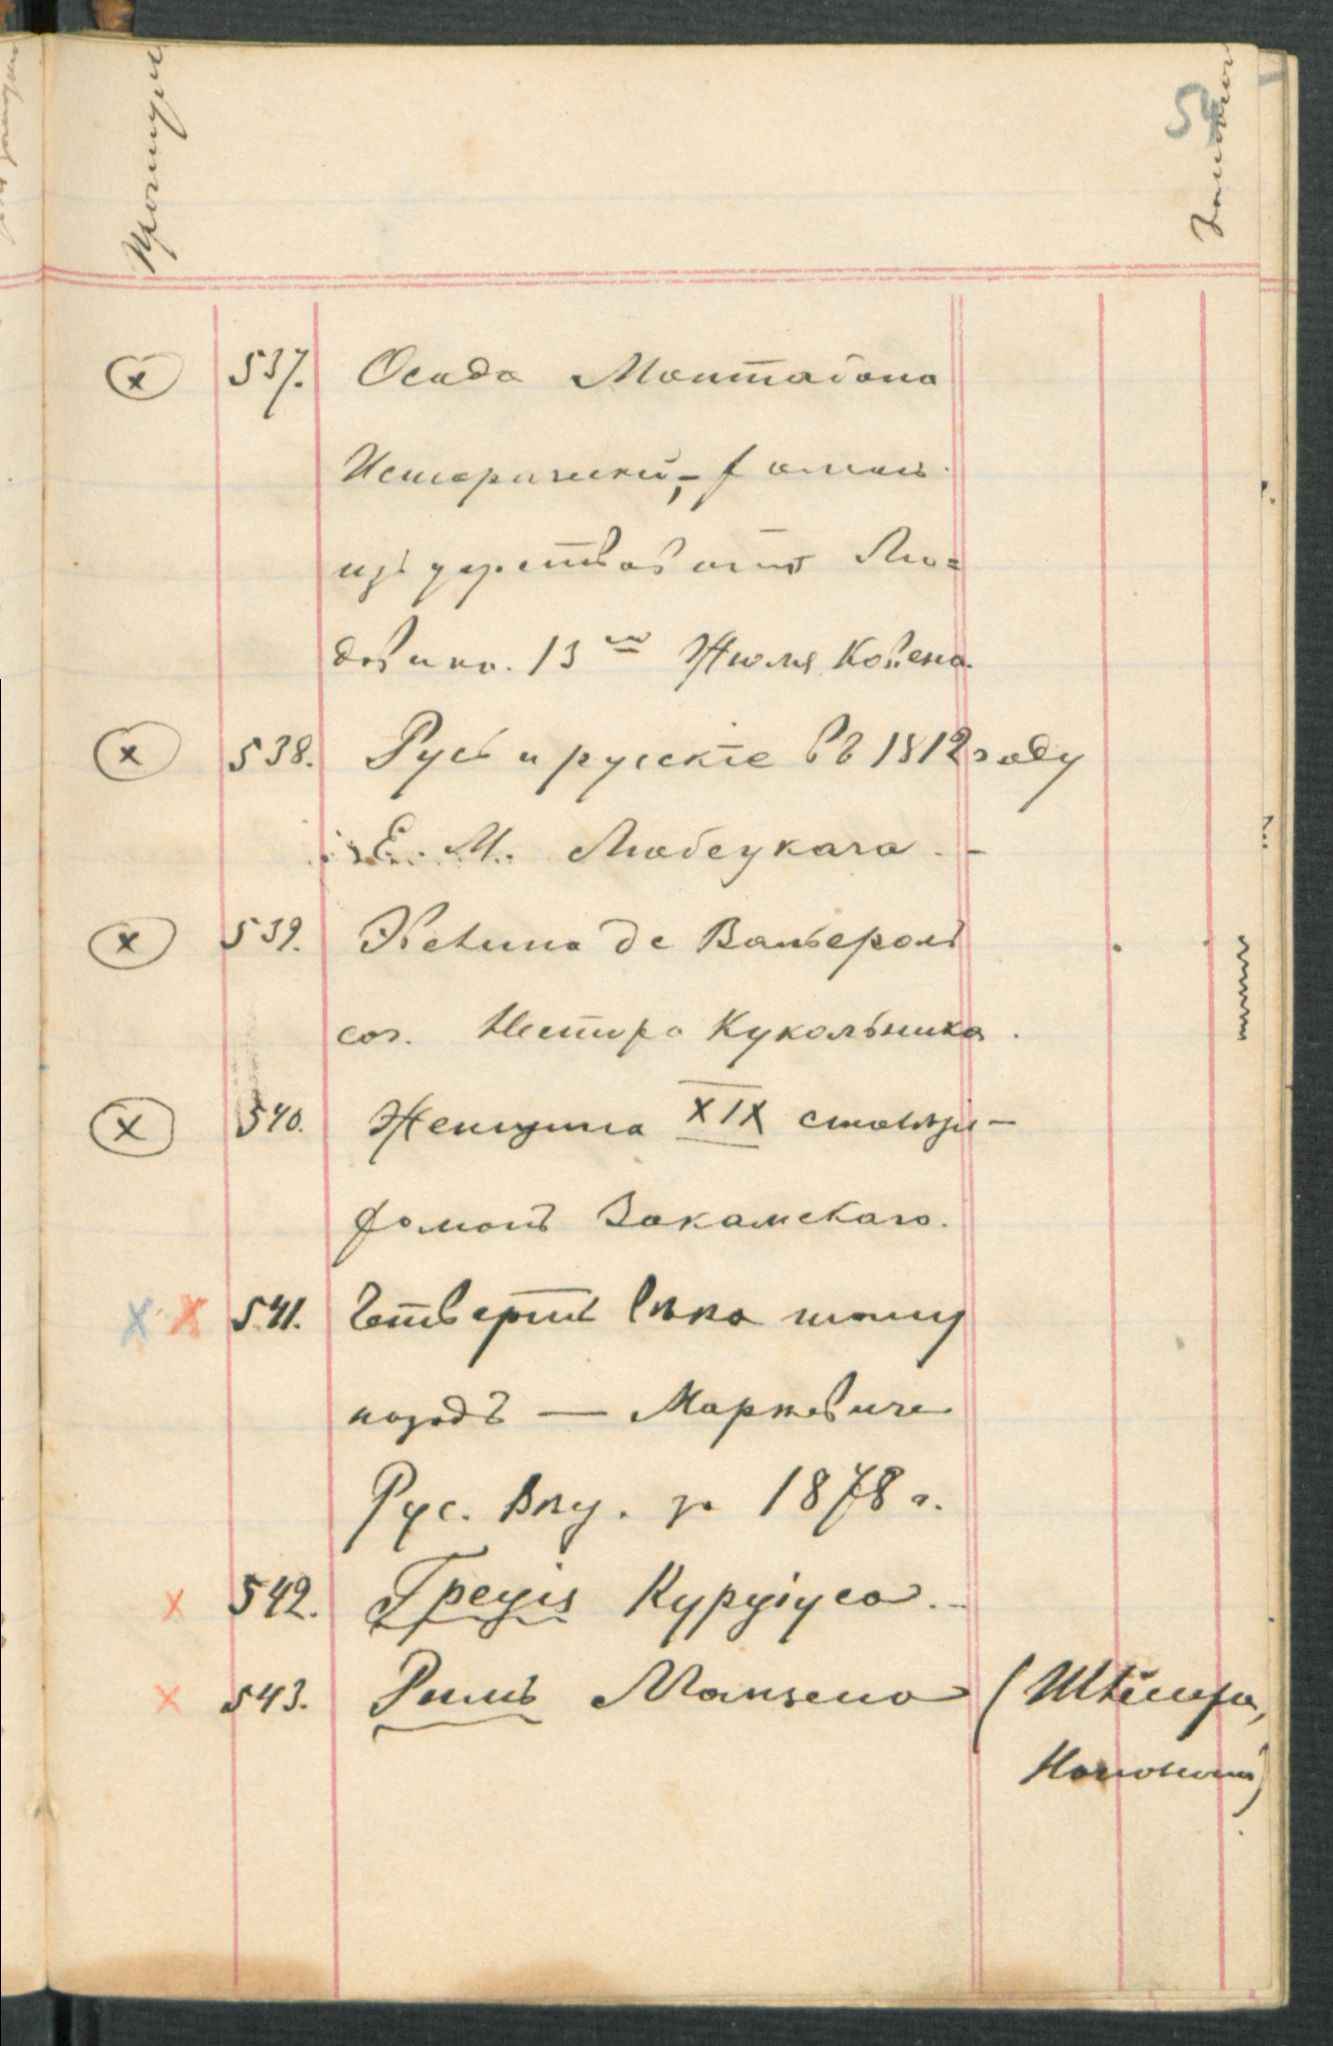 54
537. Осада Монтабана
Исторический, романъ
изъ царствованія Лю-
довика. 13го Жюля Ковена.
538. Русь и русскіе въ 1812 году
Е. М. Любецкаго. -
539. Эвелина де Вальероль
соч. Нестора Кукольника.
540. Женщина XIX столѣтія -
романъ Закамскаго.
541. Четверть вѣка тому
назадъ — Маркевича
Рус. Вѣс. за 1878 г.
542. Греція Курціуса. -
543. Римъ Момзена (Штейна,